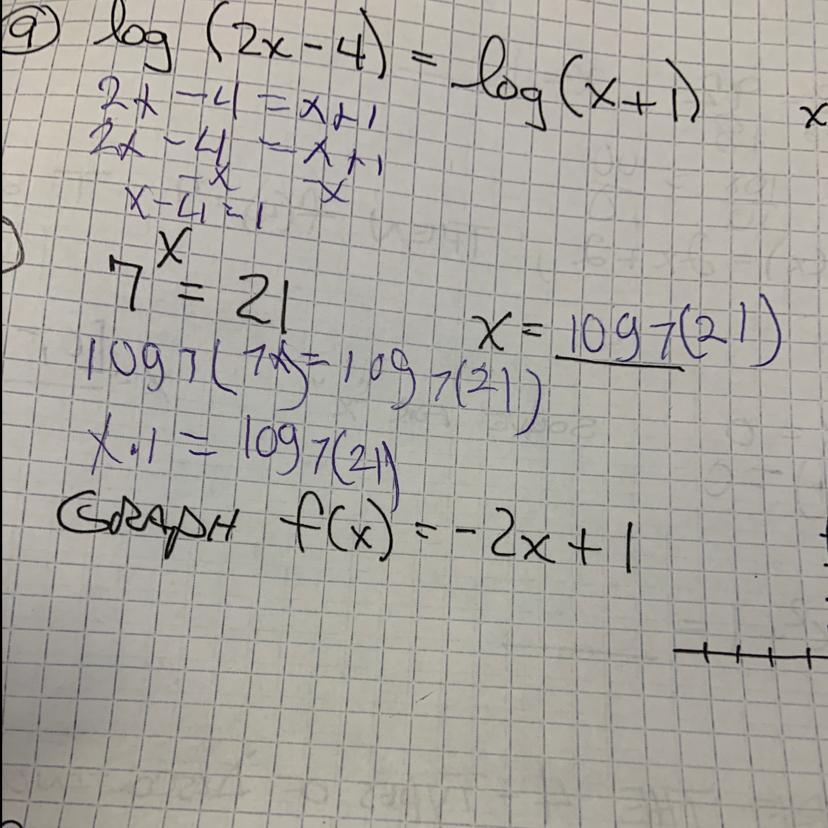 9 log (2x-4) = log(x+1)
2x -4 = x+1
2x -4 = x+1
-x -x
x-4=1
7^x = 21
x = log7(21)
log7(7x)=log7(21)
x.1 = log7(21)
GRAPH f(x) = -2x+1
x